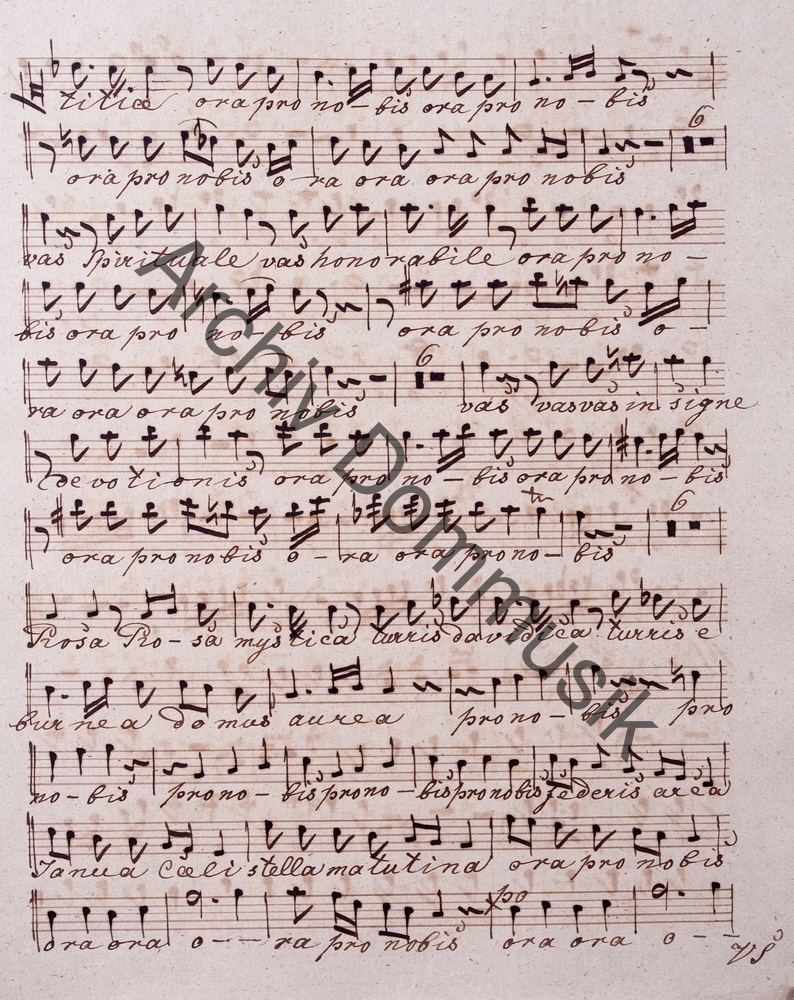 titiæ ora pro no - bis ora pro no - bis
6
ora pro nobis o - ra ora ora pro nobis
vas Spirituale vas honorabile ora pro no -
bis ora pro no - bis ora pro nobis o -
6
ra ora ora pro nobis vas vas vas in signe
devotionis ora pro no - bis ora pro no - bis
tr 6
ora pro nobis o - ra ora pro no - bis
Rosa Ro - sa mystica turris davidica turris e
burnea domus aurea pro no - bis pro
no - bis pro no - bis pro no - bis pro nobis federis arca
Janua Cæli stella matutina ora pro nobis
po
ora ora o - - - ra pro nobis ora ora o - -
VS
Archiv Dommusik